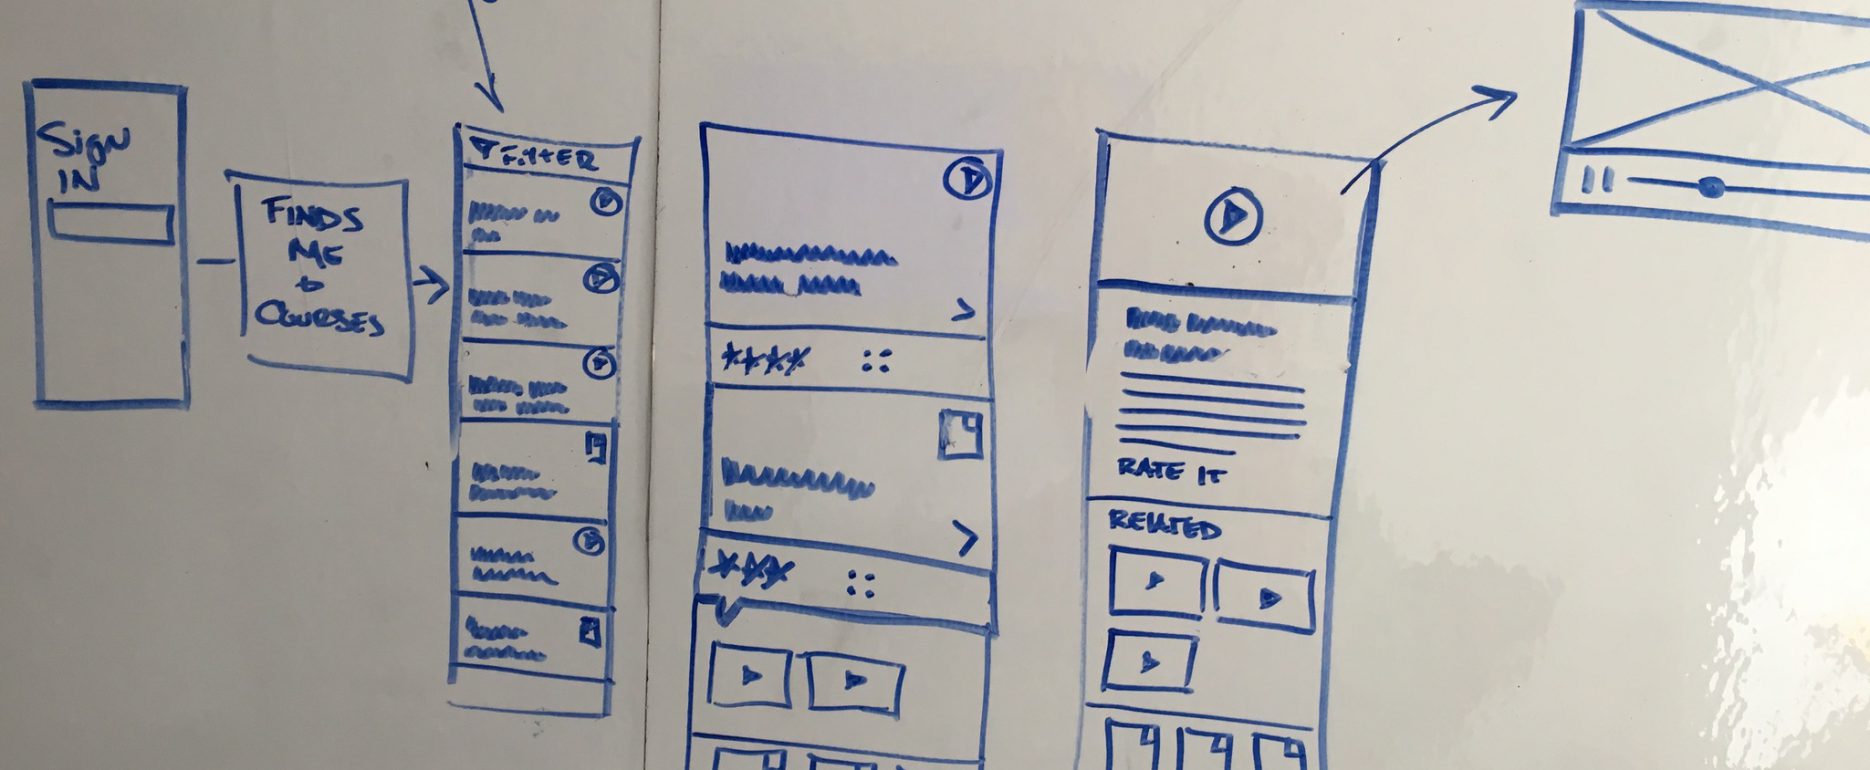 Sign
IN
FINDS
ME
+
COURSES
FILTER
RATE IT
RELATED